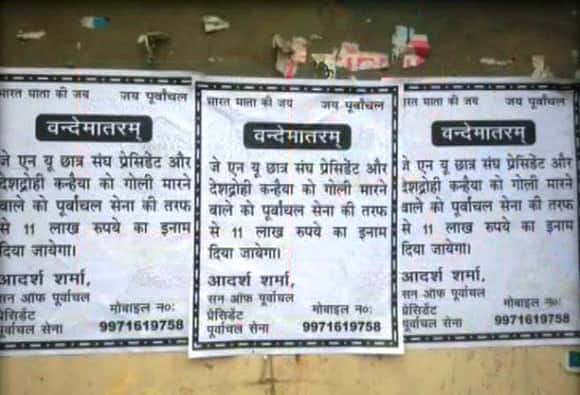 भारत माता की जय जय पूर्वांचल
वन्देमातरम्
जे एन यू छात्र संघ प्रेसिडेंट और
देशद्रोही कन्हैया को गोली मारने
वाले को पूर्वांचल सेना की तरफ
से 11 लाख रुपये का इनाम
दिया जायेगा।
आदर्श शर्मा,
सन ऑफ पूर्वांचल
प्रेसिडेंट मोबाइल न०:
पूर्वांचल सेना 9971619758
भारत माता की जय जय पूर्वांचल
वन्देमातरम्
जे एन यू छात्र संघ प्रेसिडेंट और
देशद्रोही कन्हैया को गोली मारने
वाले को पूर्वांचल सेना की तरफ
से 11 लाख रुपये का इनाम
दिया जायेगा।
आदर्श शर्मा,
सन ऑफ पूर्वांचल
प्रेसिडेंट मोबाइल न०:
पूर्वांचल सेना 9971619758
भारत माता की जय जय पूर्वांचल
वन्देमातरम्
जे एन यू छात्र संघ प्रेसिडेंट और
देशद्रोही कन्हैया को गोली मारने
वाले को पूर्वांचल सेना की तरफ
से 11 लाख रुपये का इनाम
दिया जायेगा।
आदर्श शर्मा,
सन ऑफ पूर्वांचल
प्रेसिडेंट मोबाइल न०:
पूर्वांचल सेना 9971619758